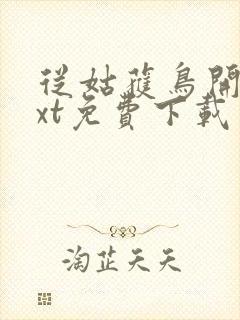 從姑蘓鳥開
xt免費下載
淘芷天天